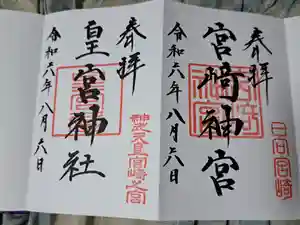 奉拝
宮崎神宮
令和六年八月六日
一日宮崎
奉拝
皇宮神社
令和六年八月六日
神武天皇宮崎之宮